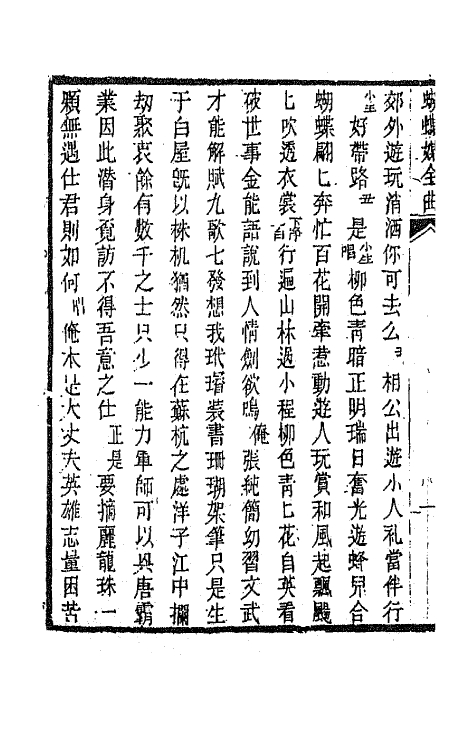 蝴蝶媒全曲
郊外遊玩消洒你可去么丑相公出遊小人礼當伴行
小生好帶路丑是小生唱柳色青暗正明瑞日奮光遊蜂兒合
蝴蝶翩匕奔忙百花開牽惹動遊人玩賞和風起飄颺
匕吹透衣裳下字百行遍山林過小程柳色青匕花自英看
破世事金能語說到人情劍欲鳴俺張純簡幼習文武
才能解賦九歌七發想我玳瑁裝書珊瑚架筆只是生
于白屋既以株机猶然只得在蘇杭之處洋子江中攔
劫聚哀餘有数千之士只少一能力軍師可以與唐霸
業因此潛身覔訪不得吾意之仕正是要摘麗龍珠一
顆無遇仕君則如何唱俺本是大丈夫英雄志量困苦